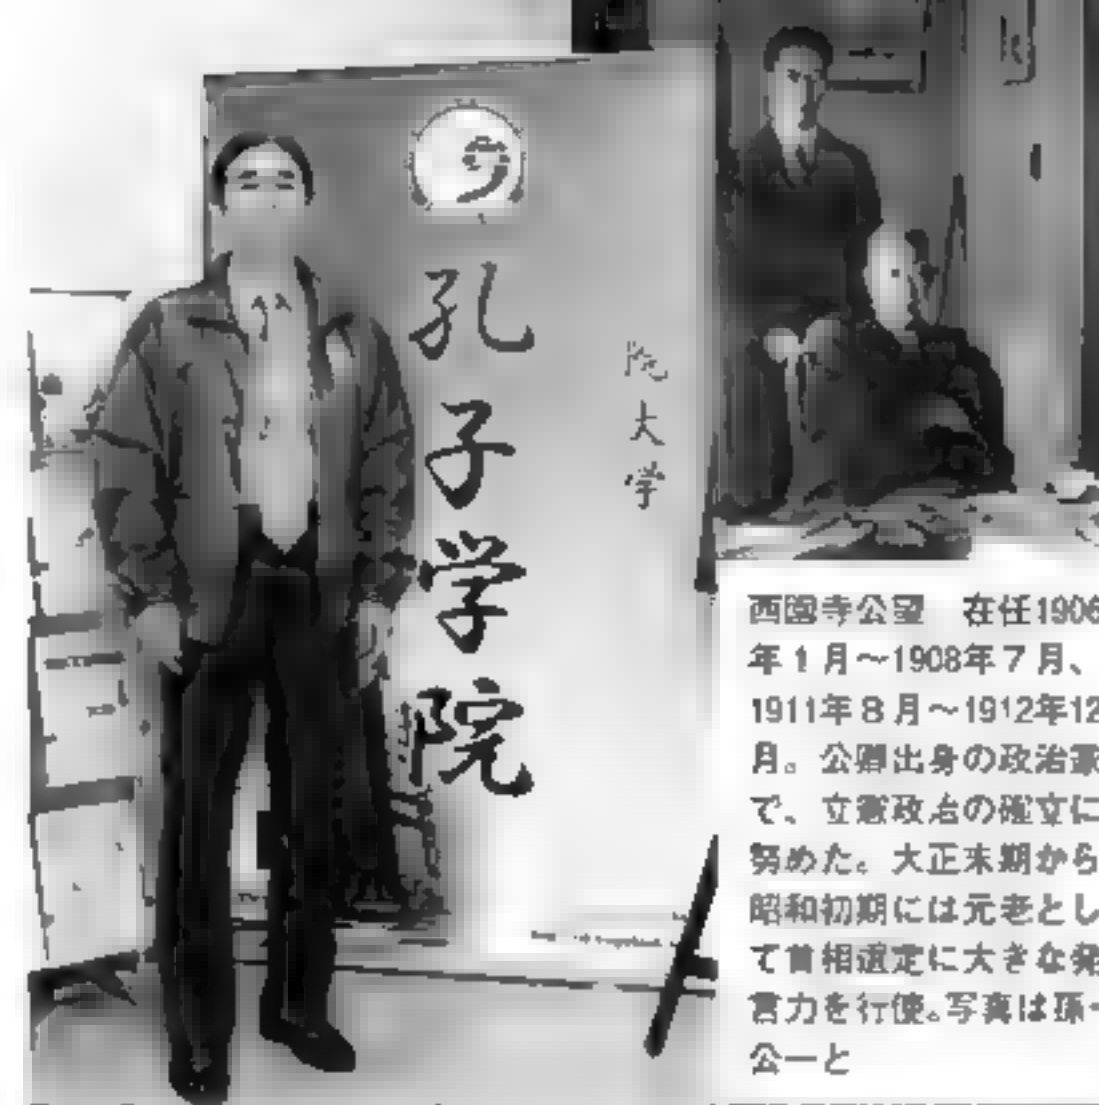 孔
子
学
院
院
大
学
西園寺公望　在任1906
年1月～1908年7月、
1911年8月～1912年12
月。公卿出身の政治家
で、立憲政治の確立に
努めた。大正末期から
昭和初期には元老とし
て首相選定に大きな発
言力を行使。写真は孫・
公一と